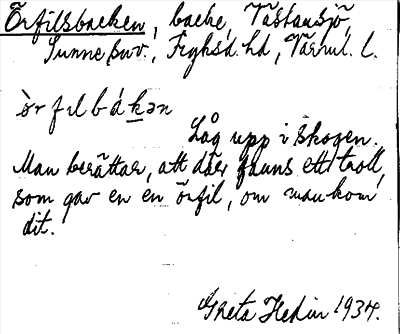 Örfilsbacken, backe, Västansjö,
Sunne, swv., Fryksd. hd, Värml. l.
ö̀r fɪl bákən
Låg upp i skogen.
Man berättar, att där fanns ett troll,
som gav en en örfil, om man kom
dit.
Greta Hedin 1934.